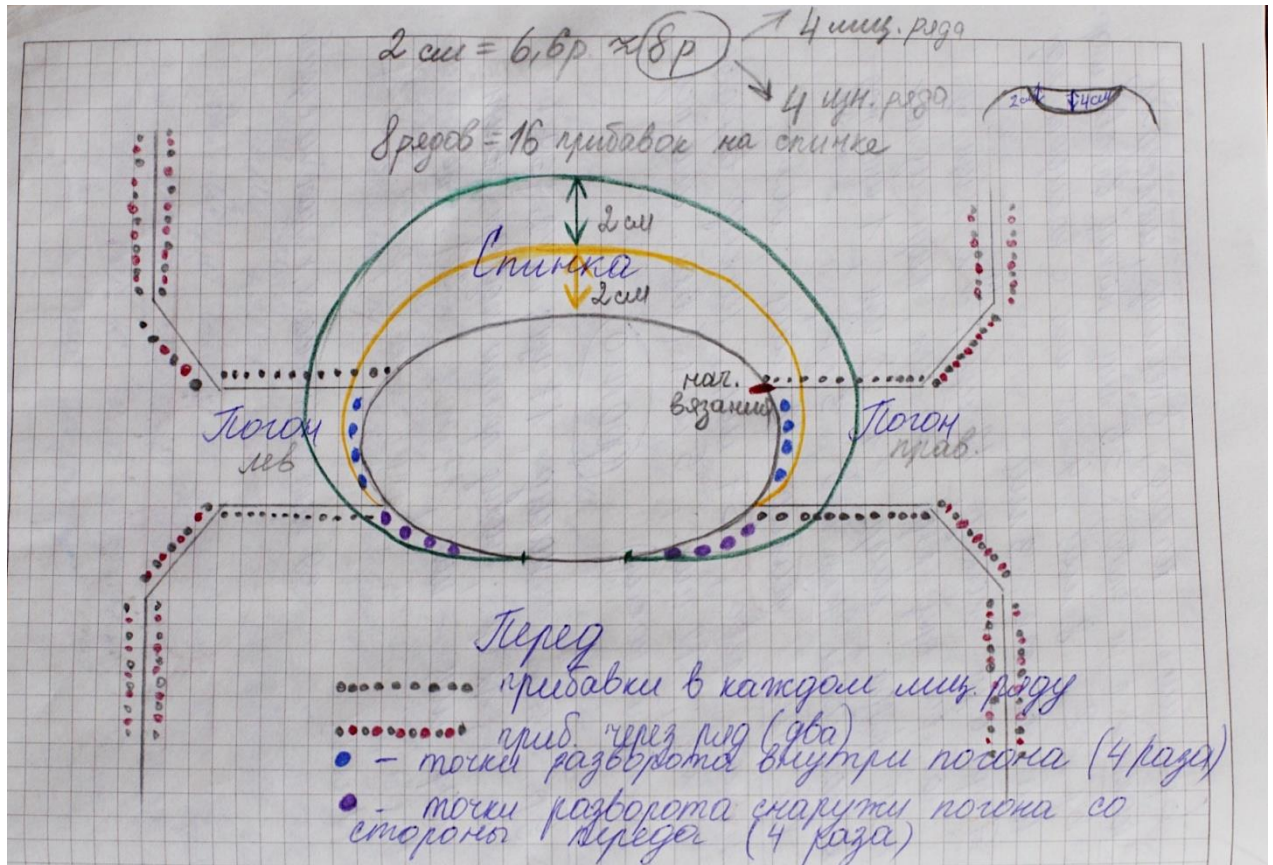 2 см = 6,6р ≈ 8р
4 лиц. ряда
4 изн. ряда
2см 4см
8 рядов = 16 прибавок на спинке
2 см
Спинка
2 см
нач.
вязания
Погон
лев
Погон
прав.
Перед
прибавки в каждом лиц. ряду
приб. через ряд (два)
- точки разворота внутри погона (4 раза)
- точки разворота снаружи погона со
стороны переда (4 раза)